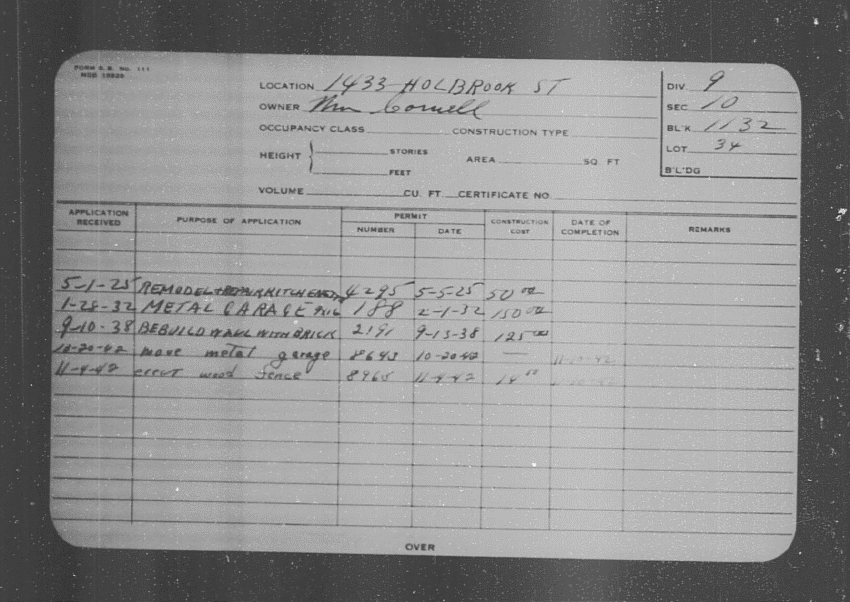 FORM S.B. No. 111
LOCATION 1433 HOLBROOK ST
DIV. 9
OWNER Wm Cornell
SEC 10
OCCUPANCY CLASS CONSTRUCTION TYPE
BL'K 1132
HEIGHT STORIES AREA SQ FT
LOT 34
FEET
B'L'DG
VOLUME CU. FT. CERTIFICATE NO.
APPLICATION RECEIVED PURPOSE OF APPLICATION PERMIT NUMBER DATE CONSTRUCTION COST DATE OF COMPLETION REMARKS
5-1-25 REMODEL + KITCHEN 4295 5-5-25 50 00
1-28-32 METAL GARAGE 188 2-1-32 150 00
9-10-38 REBUILD WALL WITH BRICK 2191 9-13-38 125 00
10-20-42 move metal garage 8643 10-20-42 — 11-10-42
11-4-42 erect wood fence 8965 11-4-42 14 00
OVER